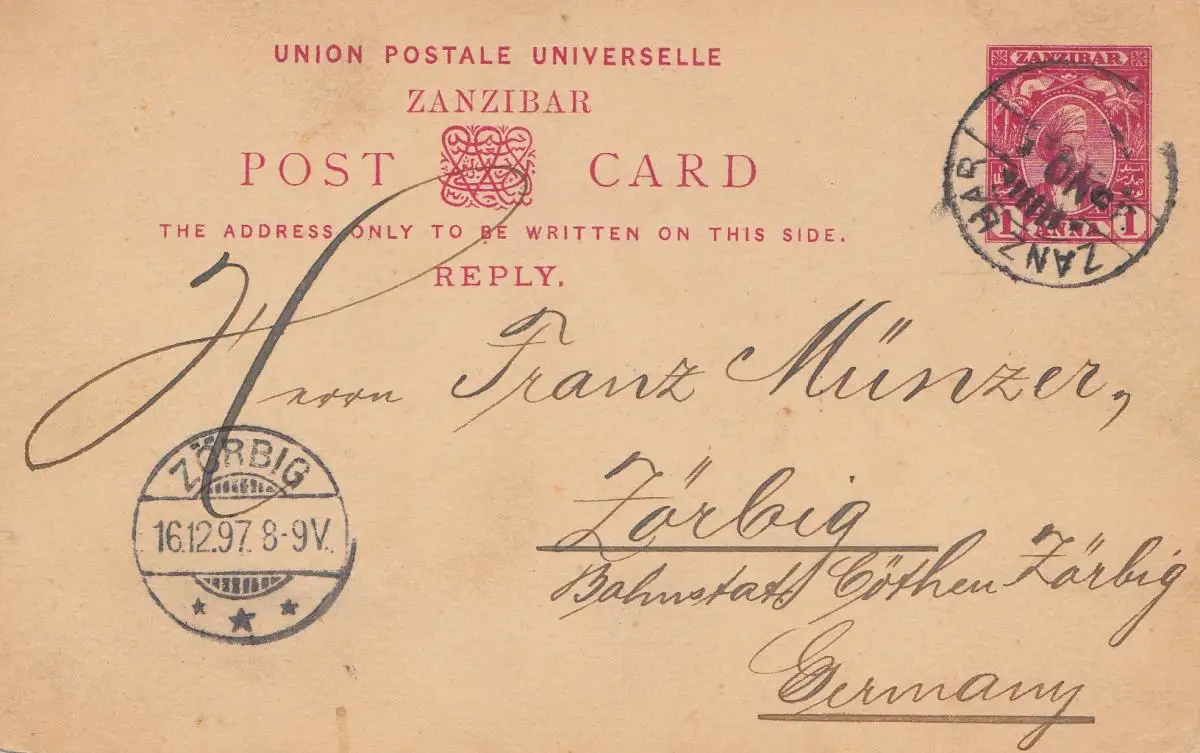 UNION POSTALE UNIVERSELLE
ZANZIBAR
POST CARD
THE ADDRESS ONLY TO BE WRITTEN ON THIS SIDE.
REPLY.
ZANZIBAR
1 ANNA 1
ZANZIBAR
NO
Herrn Franz Münzer,
Zörbig
Bahnstat. Cöthen Zörbig
Germany
ZÖRBIG
16.12.97. 8-9V.